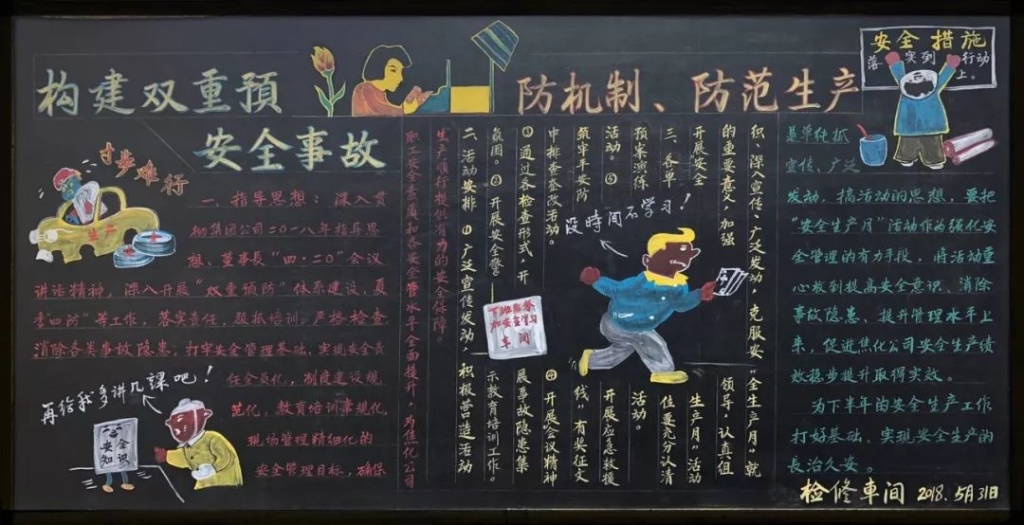 构建双重預
防机制、防范生产
安全事故
安全措施
落实到行动
上。
寸步难行
生产
安全
一、指导思想：深入贯
彻集团公司二〇一八年指导思
想、董事長“四·二〇”会议
讲话精神，深入开展“双重预防”体系建设，夏
季“四防”等工作，落实责任，狠抓培训，严格检查
消除各类事故隐患，打牢安全管理基础，实现安全责
任全员化，制度建设规
范化，教育培训常规化，
现场管理精细化的
安全管理目标，确保
再给我多讲几課吧！
安全
知识
生产顺行提供有力的安全保障。
职工安全素质和各安全管理水平全面提升，为焦化公司
二、活动安排：①广泛宣传发动，积极营造活动
氛围。②开展安全警
示教育培训工作。
③通过各检查形式，开
展事故隐患集
中排查整改活动。
④开展会议精神
筑牢平安防
线”有奖征文
活动。⑤
开展应急救援
预案演练
活动。
三、各单
位要充分认清
开展安全
生产月”活动
的重要意义，加强
领导，认真组
织、深入宣传、广泛发动，克服安
“全生产月”就
没時间不学习！
下班后参
加安全学习
車间
是单纯抓
宣传、广泛
发动、搞活动的思想，要把
“安全生产月”活动作为强化安
全管理的有力手段，将活动重
心放到提高安全意识、消除
事故隐患、提升管理水平上
来，促进焦化公司安全生产绩
效稳步提升取得实效。
为下半年的安全生产工作
打好基础、实现安全生产的
長治久安。
检修車间 2018.5月31日